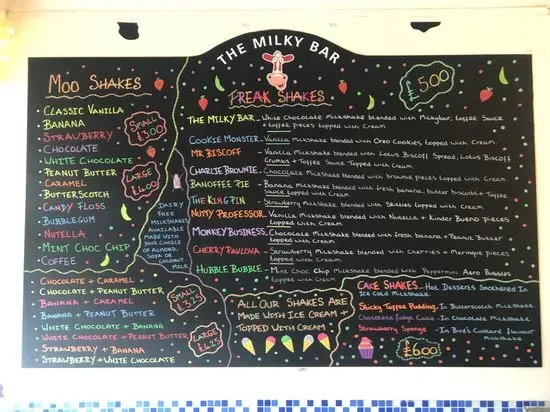 THE MILKY BAR
MOO SHAKES
CLASSIC VANILLA
BANANA
STRAWBERRY
CHOCOLATE
WHITE CHOCOLATE
PEANUT BUTTER
CARAMEL
BUTTERSCOTCH
CANDY FLOSS
BUBBLEGUM
NUTELLA
MINT CHOC CHIP
COFFEE
SMALL
£3.00
LARGE
£4.00
DAIRY
FREE
MILKSHAKES
AVAILABLE
MADE WITH
YOUR CHOICE
OF ALMOND,
SOYA OR
COCONUT
MILK
FREAK SHAKES
£5.00
THE MILKY BAR - White Chocolate Milkshake blended with Milkybar, Toffee Sauce
+ Toffee pieces topped with Cream
COOKIE MONSTER - Vanilla Milkshake blended with Oreo Cookies topped with Cream.
MR. BISCOFF - Vanilla Milkshake blended with Lotus Biscoff Spread, Lotus Biscoff
Crumbs + Toffee Sauce Topped with Cream.
CHARLIE BROWNIE - Chocolate Milkshake blended with brownie pieces topped with Cream.
BANOFFEE PIE - Banana Milkshake blended with fresh banana, butter biscuits + Toffee
Sauce topped with Cream
THE KINGPIN - Strawberry Milkshake blended with Skittles topped with Cream
NUTTY PROFESSOR - Vanilla Milkshake blended with Nutella + Kinder Bueno pieces
topped with Cream.
MONKEY BUSINESS - Chocolate Milkshake blended with fresh banana + Peanut Butter
topped with Cream.
CHERRY PAVLOVA - Strawberry Milkshake blended with Cherries + Meringue pieces
topped with Cream.
HUBBLE BUBBLE - Mint Choc Chip Milkshake blended with Peppermint Aero Bubbles
topped with Cream.
CHOCOLATE + CARAMEL
CHOCOLATE + PEANUT BUTTER
BANANA + CARAMEL
BANANA + PEANUT BUTTER
WHITE CHOCOLATE + BANANA
WHITE CHOCOLATE + PEANUT BUTTER
STRAWBERRY + BANANA
STRAWBERRY + WHITE CHOCOLATE
SMALL
£3.25
LARGE
£4.25
ALL OUR SHAKES ARE
MADE WITH ICE CREAM +
TOPPED WITH CREAM
CAKE SHAKES - Hot Desserts Smothered In
Ice Cold Milkshake.
Sticky Toffee Pudding - In Butterscotch Milkshake
Chocolate Fudge Cake - In Chocolate Milkshake
Strawberry Sponge - In Bird's Custard flavour
Milkshake
£6.00